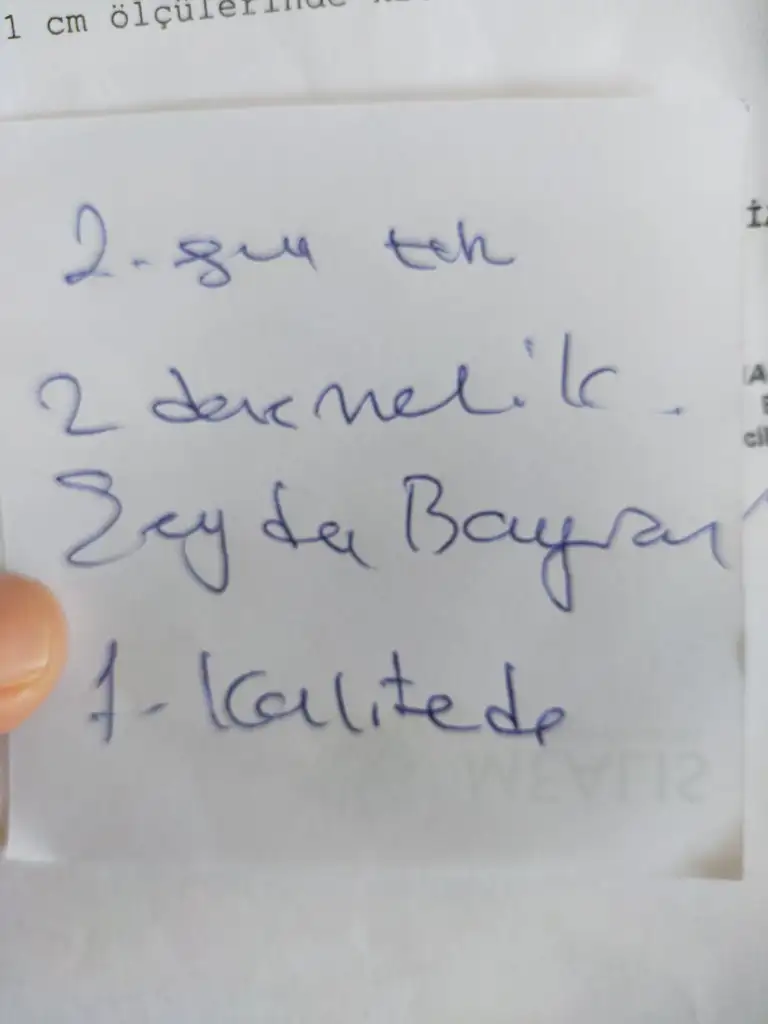 1 cm ölçülerinde
2. gun tek
2 denemelik.
Zeyda Bayram
1- Kalitede
MEALIS